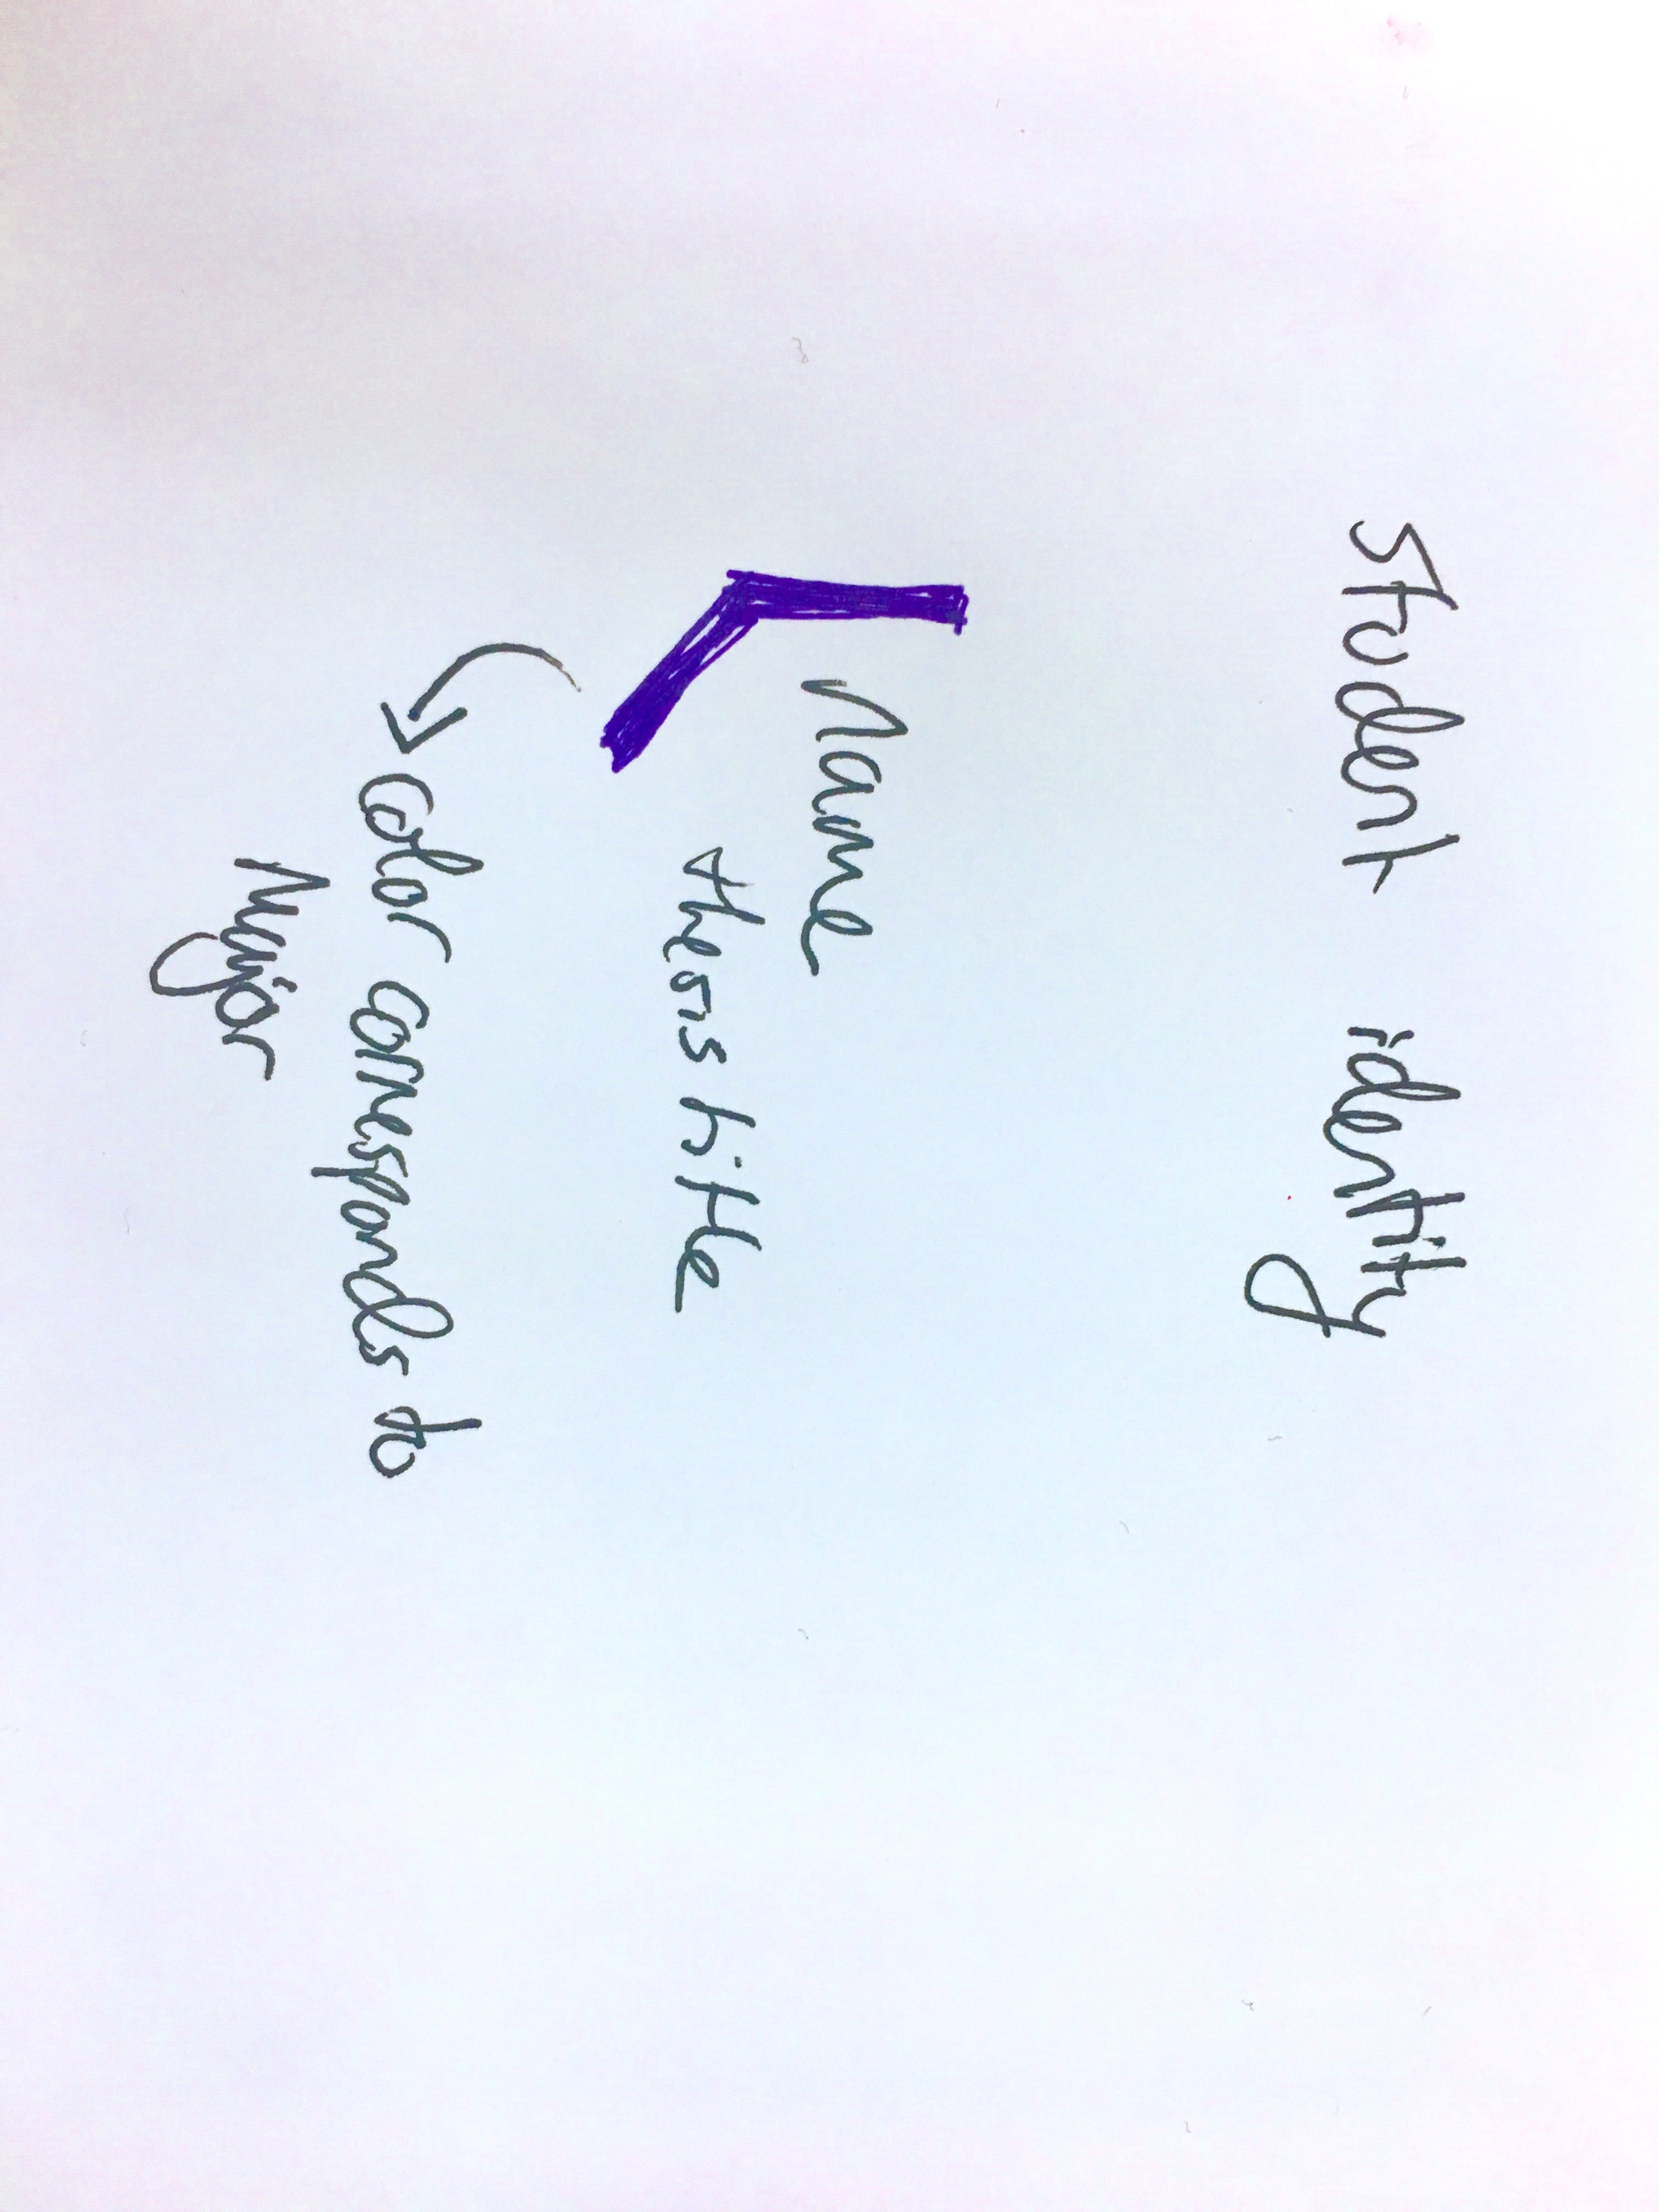 Student identity
Name
thesis title
color corresponds to
Major